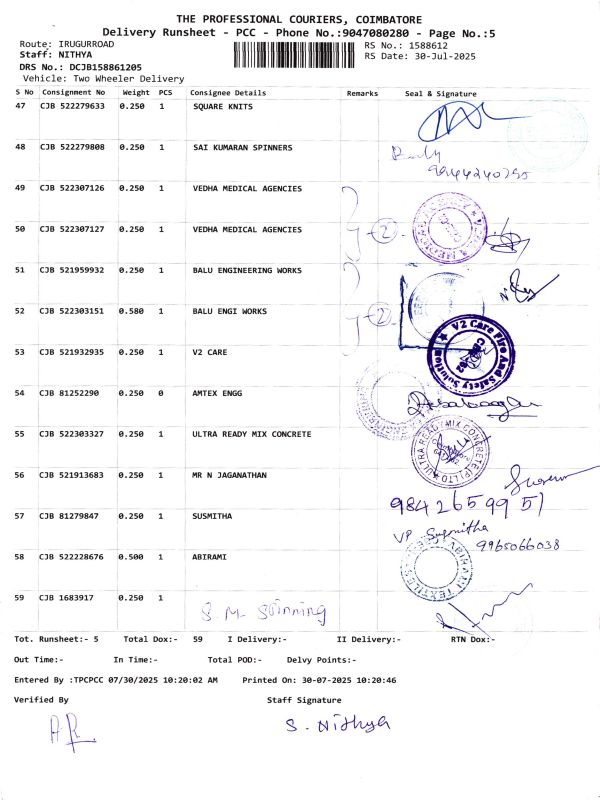 THE PROFESSIONAL COURIERS, COIMBATORE
Delivery Runsheet - PCC - Phone No.:9047080280 - Page No.:5
Route: IRUGURROAD
Staff: NITHYA
DRS No.: DCJB158861205
Vehicle: Two Wheeler Delivery
RS No.: 1588612
RS Date: 30-Jul-2025
S No Consignment No Weight PCS Consignee Details Remarks Seal & Signature
47 CJB 522279633 0.250 1 SQUARE KNITS
48 CJB 522279808 0.250 1 SAI KUMARAN SPINNERS
9944240750
49 CJB 522307126 0.250 1 VEDHA MEDICAL AGENCIES
50 CJB 522307127 0.250 1 VEDHA MEDICAL AGENCIES 2
51 CJB 521959932 0.250 1 BALU ENGINEERING WORKS
52 CJB 522303151 0.580 1 BALU ENGI WORKS 2
53 CJB 521932935 0.250 1 V2 CARE
V2 Care Fire And Safety Solution
54 CJB 81252290 0.250 0 AMTEX ENGG
55 CJB 522303327 0.250 1 ULTRA READY MIX CONCRETE
ULTRA READY MIX CONCRETE (P) LTD
56 CJB 521913683 0.250 1 MR N JAGANATHAN
9842659951
57 CJB 81279847 0.250 1 SUSMITHA
VP Susmitha
9965066038
58 CJB 522228676 0.500 1 ABIRAMI
ABIRAMI TEXTILES
59 CJB 1683917 0.250 1
S M Spinning
Tot. Runsheet:- 5 Total Dox:- 59 I Delivery:- II Delivery:- RTN Dox:-
Out Time:- In Time:- Total POD:- Delvy Points:-
Entered By :TPCPCC 07/30/2025 10:20:02 AM Printed On: 30-07-2025 10:20:46
Verified By Staff Signature
S. Nithya